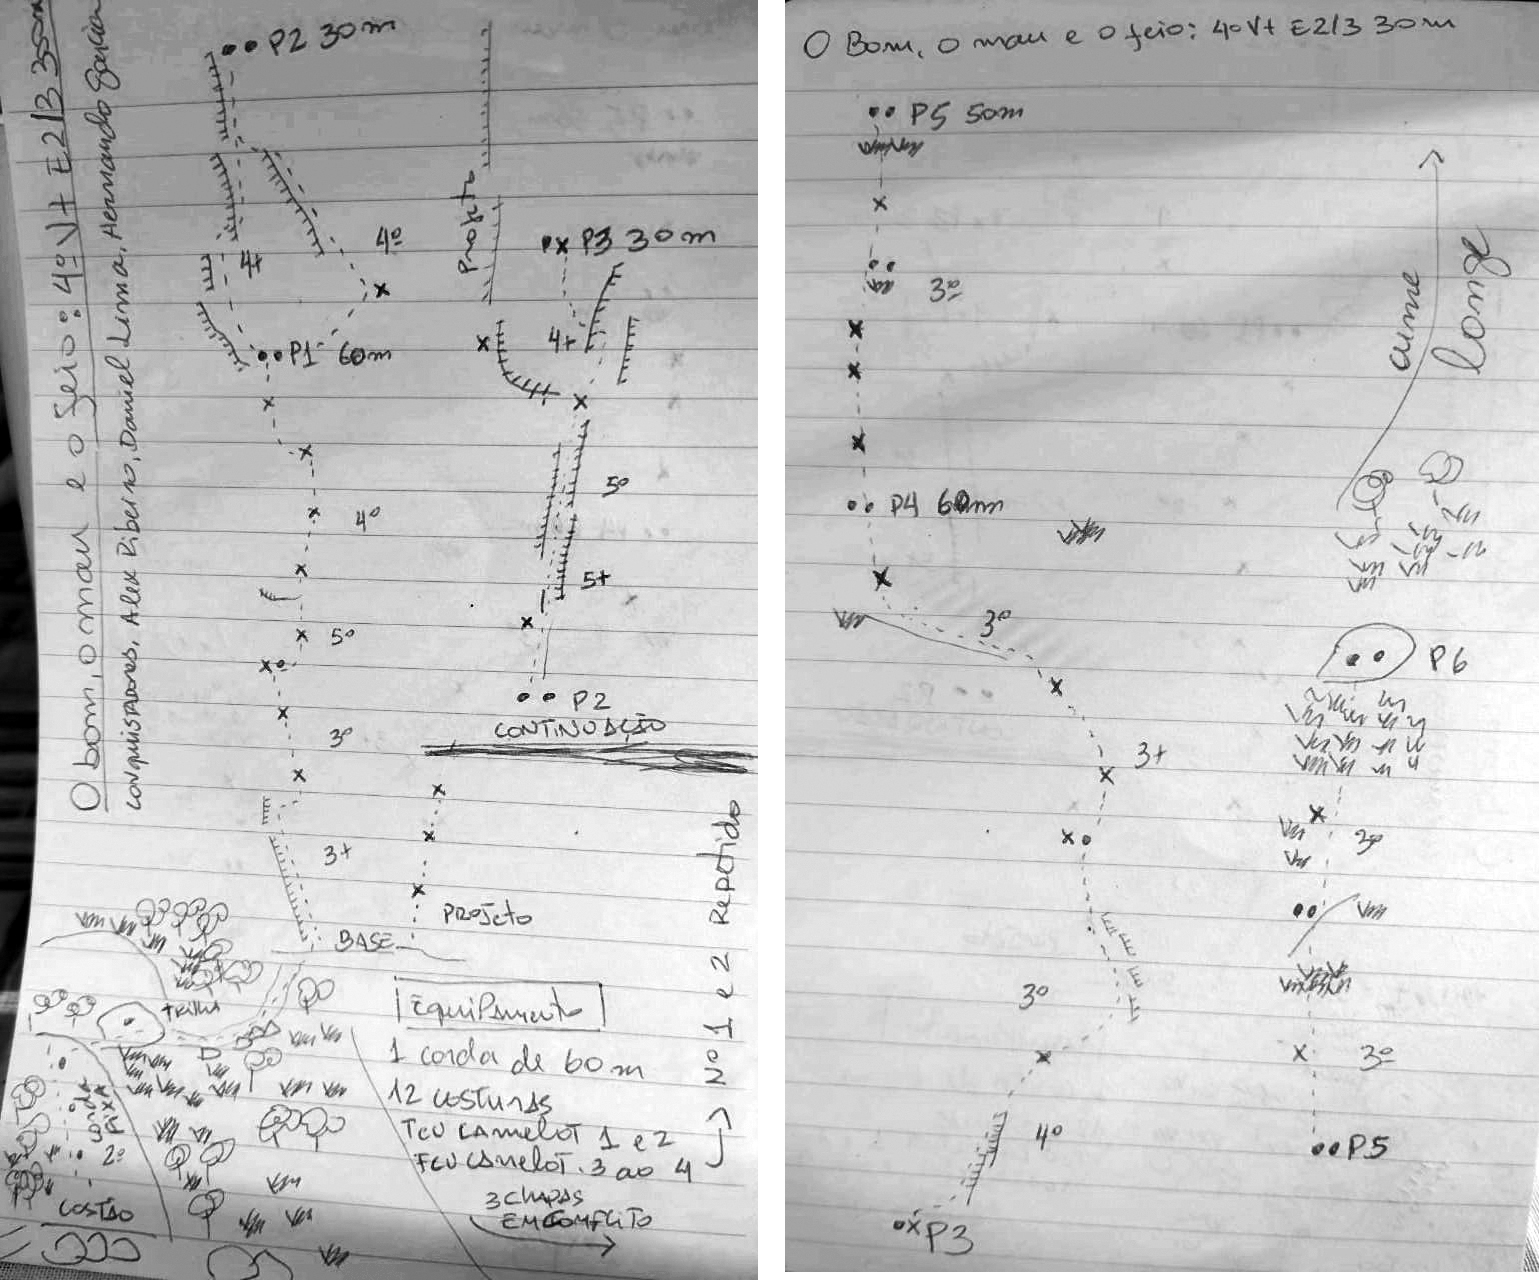 O bom, o mau e o feio: 4º V+ E2/3 350m
Conquistadores, Alex Ribeiro, Daniel Lima, Hernando Garcia
P2 30m
4+
4º
P1 60m
4º
5º
3º
3+
BASE
Projeto
P3 30m
4+
5º
5+
P2
CONTINUAÇÃO
PROJETO
TRILHA
CORDA FIXA
2º
COSTÃO
Equipamento
1 corda de 60m
12 costuras
TCU CAMELOT 1 e 2
Nº 1 e 2 Repetido
3 CHAPAS
EM CONFLITO
O Bom, o mau e o feio: 4º V+ E2/3 30m
P5 50m
3º
P4 60m
3º
3+
3º
4º
P3
cume
longe
P6
3º
3º
P5